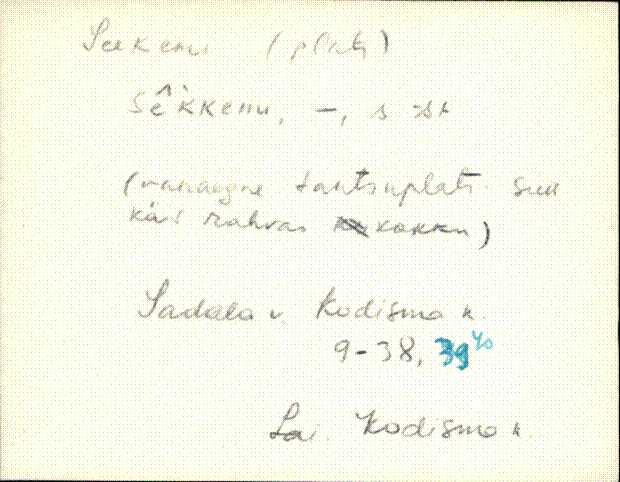 Seekemi (plats)
sêkkemi, –, s -st
(vanaegne tantsuplats. Siin
käis rahvas kokku)
Sadala v. Kodisma k.
9-38, 39 40
Lai. Kodisma k.